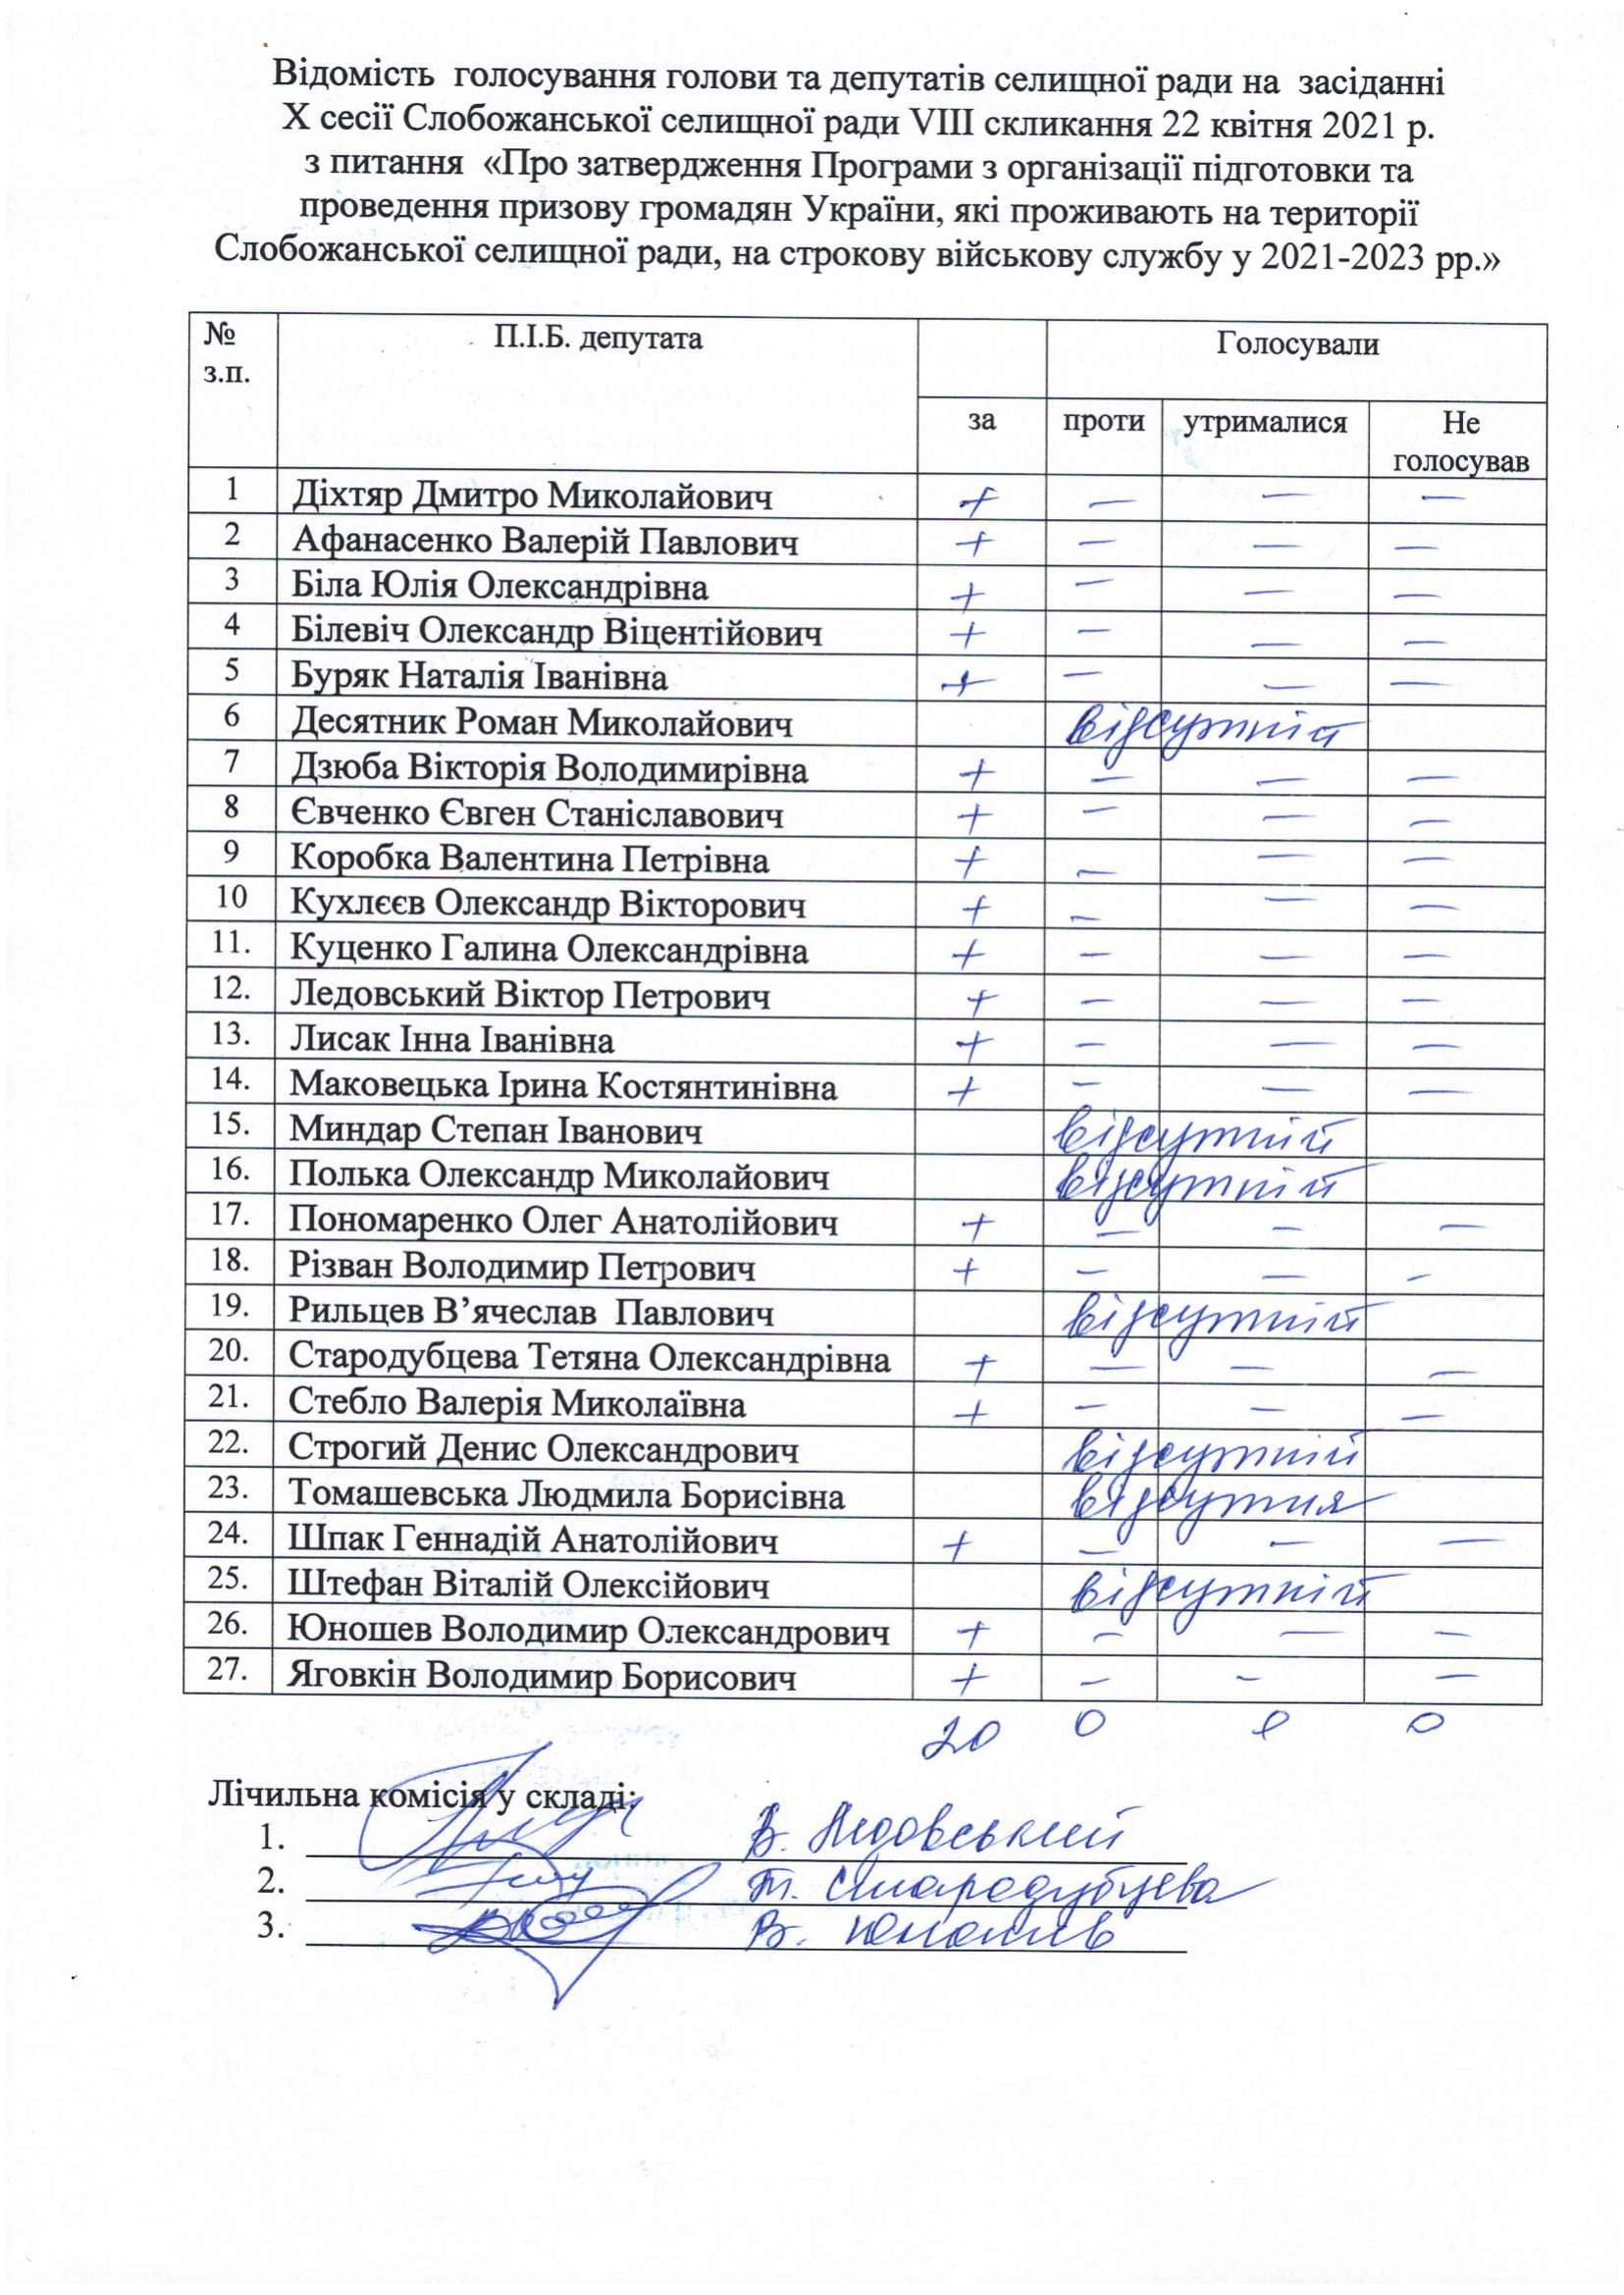 Відомість голосування голови та депутатів селищної ради на засіданні
Х сесії Слобожанської селищної ради VIII скликання 22 квітня 2021 р.
з питання «Про затвердження Програми з організації підготовки та
проведення призову громадян України, які проживають на території
Слобожанської селищної ради, на строкову військову службу у 2021-2023 рр.»
№ з.п. П.І.Б. депутата Голосували
за проти утрималися Не голосував
1 Діхтяр Дмитро Миколайович + — — —
2 Афанасенко Валерій Павлович + — — —
3 Біла Юлія Олександрівна + — — —
4 Білевіч Олександр Віцентійович + — — —
5 Буряк Наталія Іванівна + — — —
6 Десятник Роман Миколайович відсутній
7 Дзюба Вікторія Володимирівна + — — —
8 Євченко Євген Станіславович + — — —
9 Коробка Валентина Петрівна + — — —
10 Кухлєєв Олександр Вікторович + — — —
11. Куценко Галина Олександрівна + — — —
12. Ледовський Віктор Петрович + — — —
13. Лисак Інна Іванівна + — — —
14. Маковецька Ірина Костянтинівна + — — —
15. Миндар Степан Іванович відсутній
16. Полька Олександр Миколайович відсутній
17. Пономаренко Олег Анатолійович + — — —
18. Різван Володимир Петрович + — — —
19. Рильцев В’ячеслав Павлович відсутній
20. Стародубцева Тетяна Олександрівна + — — —
21. Стебло Валерія Миколаївна + — — —
22. Строгий Денис Олександрович відсутній
23. Томашевська Людмила Борисівна відсутня
24. Шпак Геннадій Анатолійович + — — —
25. Штефан Віталій Олексійович відсутній
26. Юношев Володимир Олександрович + — — —
27. Яговкін Володимир Борисович + — — —
20 0 0 0
Лічильна комісія у складі:
1. В. Ледовський
2. Т. Стародубцева
3. В. Юношев